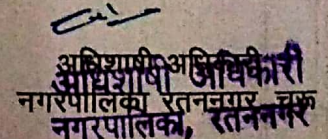 अधिशाषी अधिकारी
अधिशाषी अधिकारी
नगरपालिका रतननगर चूरू
नगरपालिका, रतननगर